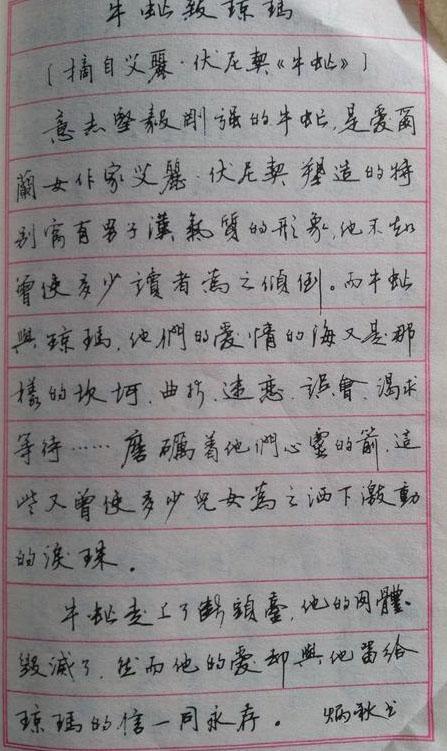 牛虻致琼瑪
[摘自艾麗·伏尼契《牛虻》]
意志堅毅剛强的牛虻,是愛爾
蘭女作家艾麗·伏尼契塑造的特
别富有男子漢氣質的形象,他不知
曾使多少讀者為之傾倒。而牛虻
與琼瑪,他們的愛情的海又是那
樣的坎坷、曲折、迷戀、誤會、渴求
等待……磨礪着他們心靈的箭,這
些又曾使多少兒女為之洒下激動
的淚珠。
牛虻走上了斷頭臺,他的肉體
毁滅了,然而他的愛却與他留给
琼瑪的信一同永存。 炳秋书